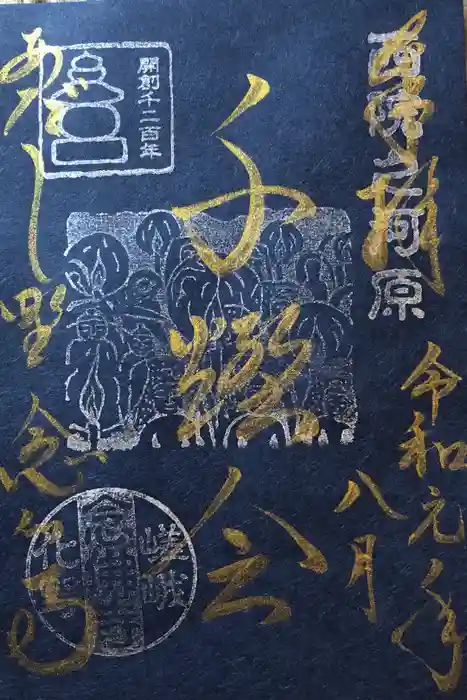 奉拝
西院之河原
令和元年
八月
千燈供
開創千二百年
あだし野念仏寺
嵯峨
念佛寺
化野